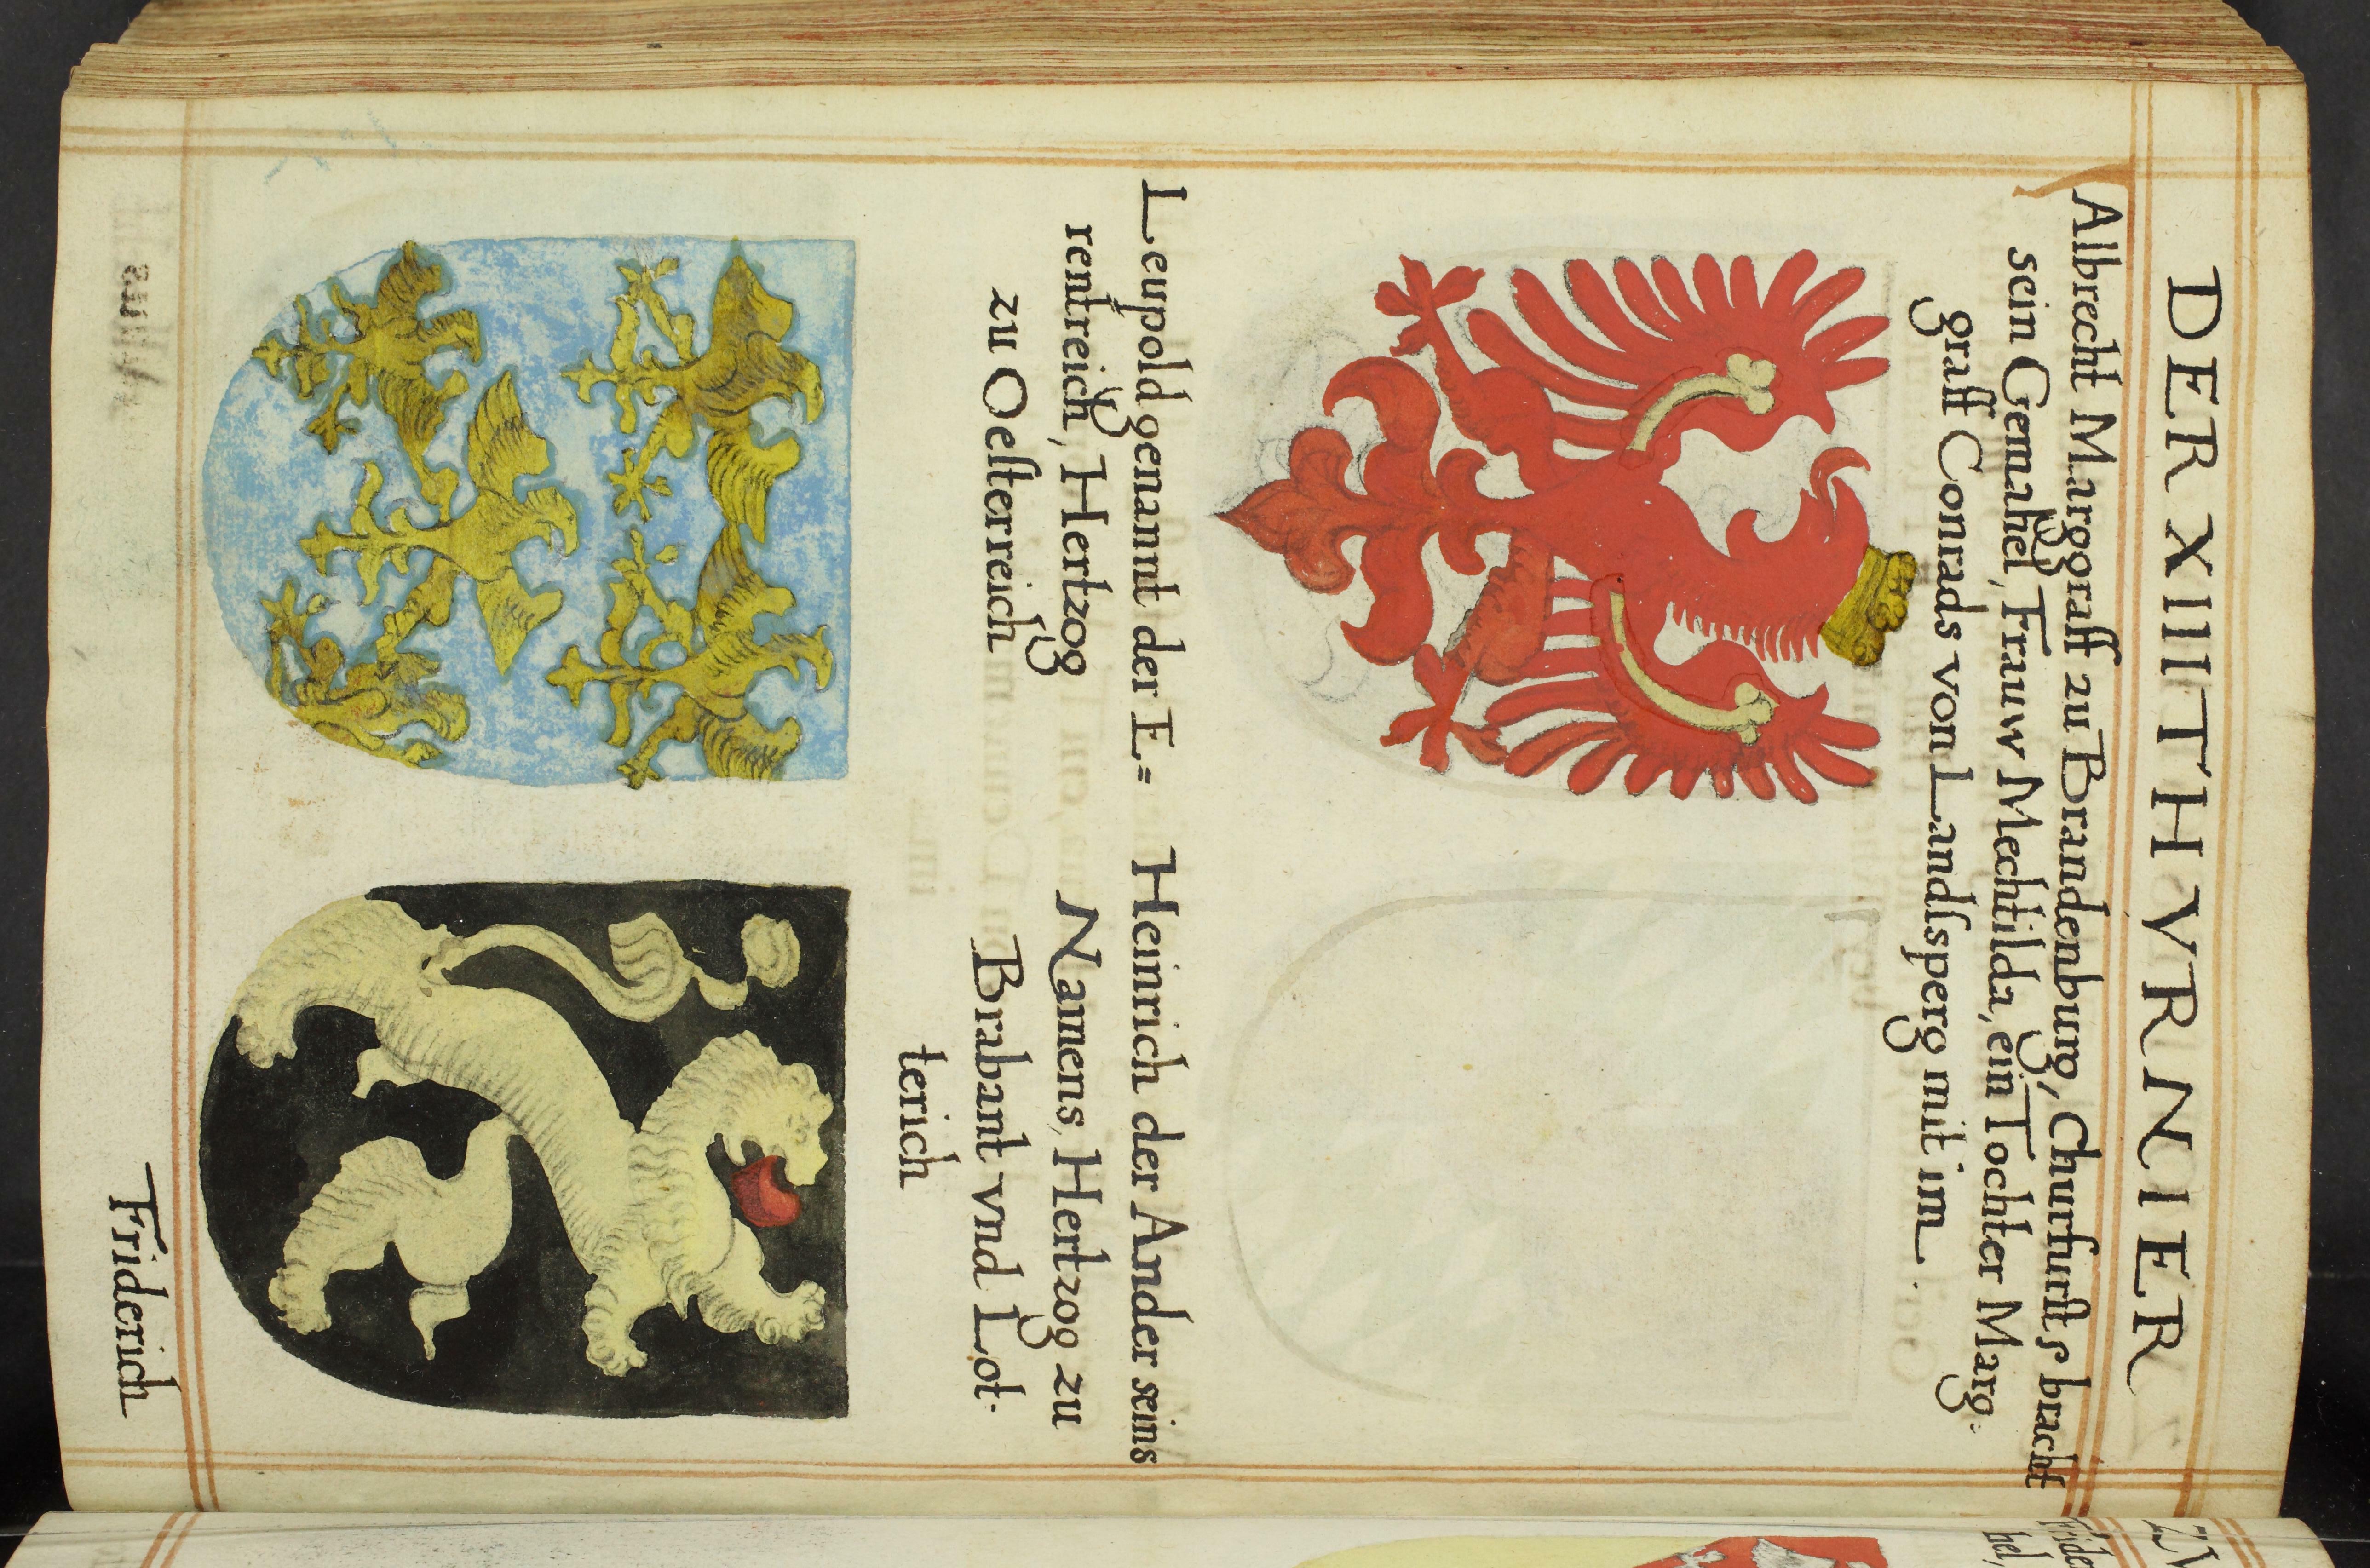 DER XIII THVRNIER
Albrecht Marggraff zu Brandenburg, Churfürst, bracht
sein Gemahel, Frauw Mechtilda, ein Tochter Marg-
graff Conrads von Landsperg mit im.
Leupold genannt der E=
rentreich, Hertzog
zu Oesterreich
Heinrich der Ander seins
Namens, Hertzog zu
Brabant vnd Lot-
terich
Friderich
ZV
hel,